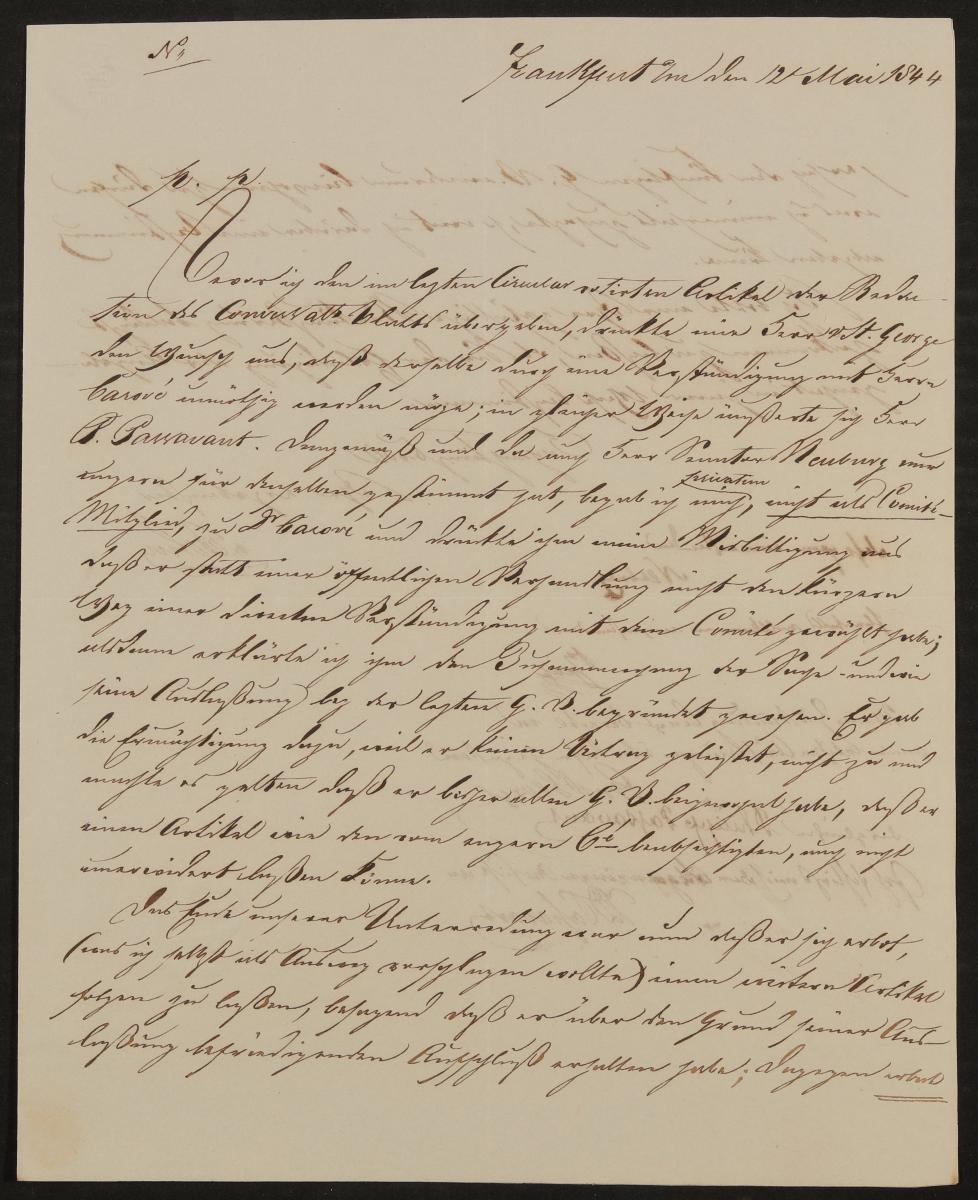 No
Frankfurt a/m den 12t Mai 1844
p. p.
Bevor ich den im lezten Circular notirten Artikel der Redac-
tion des Conversats. Blatts übergeben, drückte mir Herr v St. George
den Wunsch aus, daß derselbe durch eine Verständigung mit Herrn
Carové unnöthig werden möge; in gleicher Weise äußerte sich Herr
P. Passavant. Demgemäß und da auch Herr Senator Neuburg nur
ungern für denselben gestimmt hat, begab ich mich, privatim nicht als Comité-
Mitglied, zu Dr Carové und drückte ihm meine Misbilligung aus
daß er statt einer öffentlichen Verhandlung nicht den kürzern
Weg einer directen Verständigung mit dem Comité gewählt habe;
alsdann erklärte ich ihm den Zusammenhang der Sache und wie
seine Auslaßung bey der lezten G. V. begründet gewesen. Er gab
die Ermächtigung dazu, weil er keinen Beitrag geleistet, nicht zu und
machte es gelten daß er bisher allen G. V. beigewohnt habe, daß er
einen Artikel wie den vom engern Cé beabsichtigten, auch nicht
unerwidert laßen könne.
Das Ende unserer Unterredung war nun daß er sich erbot,
(was ich selbst als Ausweg vorschlagen wollte) einen weitern Artikel
folgen zu laßen, besagend daß er über den Grund seiner Aus-
laßung befriedigenden Aufschluß erhalten habe; dagegen erbat